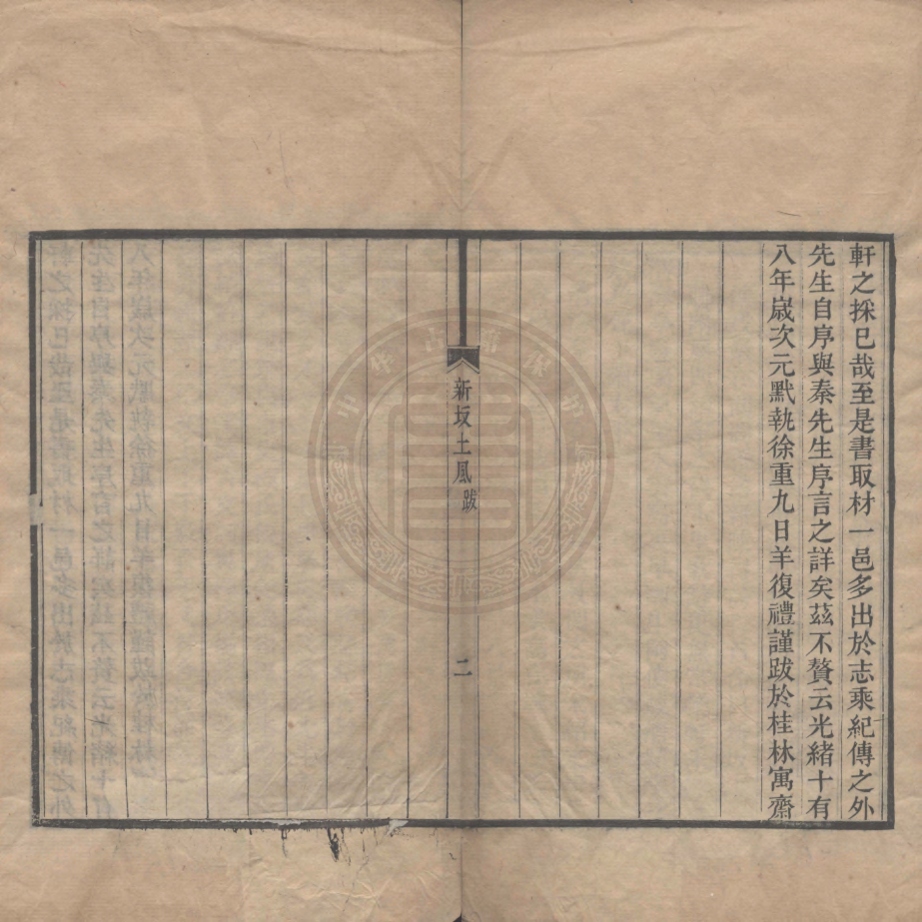 軒之採已哉至是書取材一邑多出於志乘紀傳之外
先生自序與秦先生序言之詳矣茲不贅云光緒十有
八年歲次元黓執徐重九日羊復禮謹跋於桂林寓齋
新坂土風 跋
二